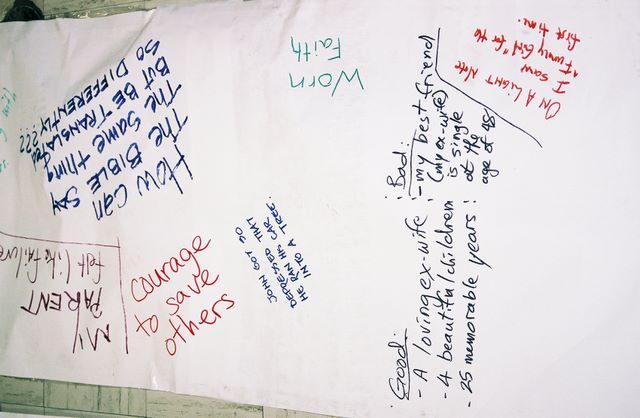 HOW CAN
THE BIBLE SAY
THE SAME thing
BUT BE TRANSLATED
SO DIFFERENTLY???
Worn
Faith
ON A LIGHT NOTE
I SAW
"Funny Girl" for the
first time.
Good:
- A loving ex-wife
- 4 beautiful children
- 25 memorable years!
Bad:
- my best friend
(my ex-wife)
is single
at the
age of 48!
JOHN GOT SO
DEPRESSED THAT
HE RAN HIS CAR
INTO A TREE.
courage
to save
others
MY
PARENT
felt like failure